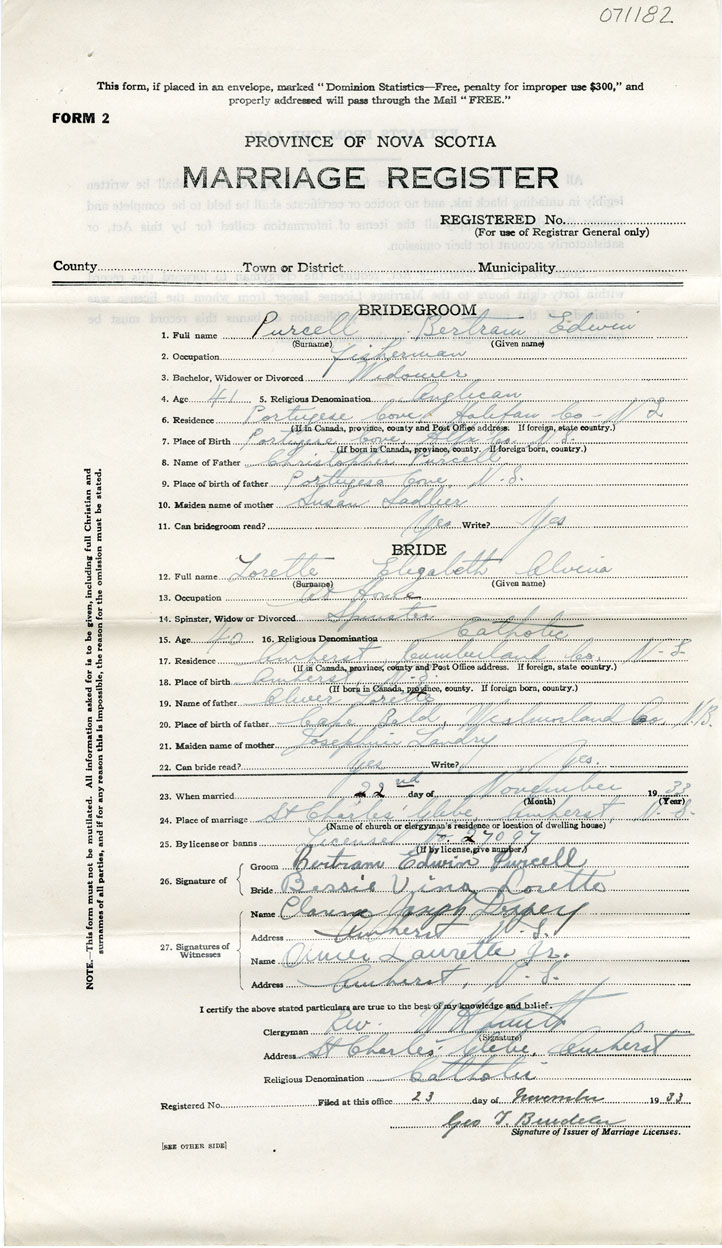 071182
This form, if placed in an envelope, marked "Dominion Statistics—Free, penalty for improper use $300," and
properly addressed will pass through the Mail "FREE."
FORM 2
PROVINCE OF NOVA SCOTIA
MARRIAGE REGISTER
REGISTERED No.
(For use of Registrar General only)
County Town or District Municipality
BRIDEGROOM
1. Full name Purcell Bertram Edwin
(Surname) (Given name)
2. Occupation Fisherman
3. Bachelor, Widower or Divorced Widower
4. Age 41 5. Religious Denomination Anglican
6. Residence Portugese Cove, Halifax Co- N S
(If in Canada, province, county and Post Office address. If foreign, state country.)
7. Place of Birth Portugese Cove, Hlfx Co. N.S.
(If born in Canada, province, county. If foreign born, country.)
8. Name of Father Christopher Purcell
9. Place of birth of father Portugese Cove, N.S.
10. Maiden name of mother Susan Sadlier
11. Can bridegroom read? Yes Write? Yes
BRIDE
12. Full name Lorette Elizabeth Alvina
(Surname) (Given name)
13. Occupation At Home
14. Spinster, Widow or Divorced Spinster
15. Age 40 16. Religious Denomination Catholic
17. Residence Amherst, Cumberland Co, N-S.
(If in Canada, province, county and Post Office address. If foreign, state country.)
18. Place of birth Amherst, N-S.
(If born in Canada, province, county. If foreign born, country.)
19. Name of father Oliver Lorette
20. Place of birth of father Cape Bald, Westmorland Co, N.B.
21. Maiden name of mother Josephin Landry
22. Can bride read? Yes Write? Yes.
23. When married 22nd day of November 19 33
(Month) (Year)
24. Place of marriage St Charles' Glebe Amherst, N-S.
(Name of church or clergyman's residence or location of dwelling house)
25. By license or banns License 27097
(If by license, give number.)
26. Signature of
Groom Bertram Edwin Purcell
Bride Bessie Vina Lorette
27. Signatures of Witnesses
Name Joseph
Address Amherst N.S.
Name Laurette Jr.
Address Amherst, N.S.
I certify the above stated particulars are true to the best of my knowledge and belief.
Clergyman Rev.
(Signature)
Address St Charles' Glebe, Amherst
Religious Denomination Catholic
Registered No. Filed at this office 23 day of November 19 33
Geo T.
Signature of Issuer of Marriage Licenses.
[SEE OTHER SIDE]
NOTE.—This form must not be mutilated. All information asked for is to be given, including full Christian and
surnames of all parties, and if for any reason this is impossible, the reason for the omission must be stated.